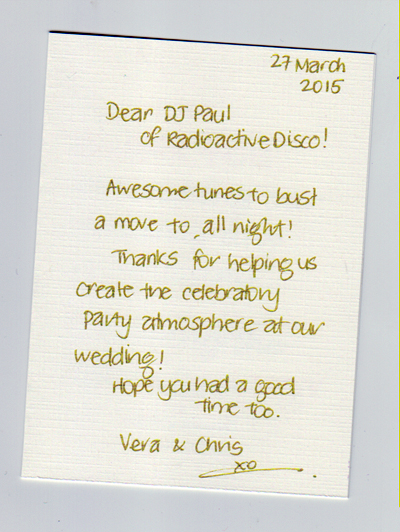 27 March
2015
Dear DJ Paul
of Radioactive Disco!
Awesome tunes to bust
a move to, all night!
Thanks for helping us
create the celebratory
party atmosphere at our
wedding!
Hope you had a good
time too.
Vera & Chris
xo